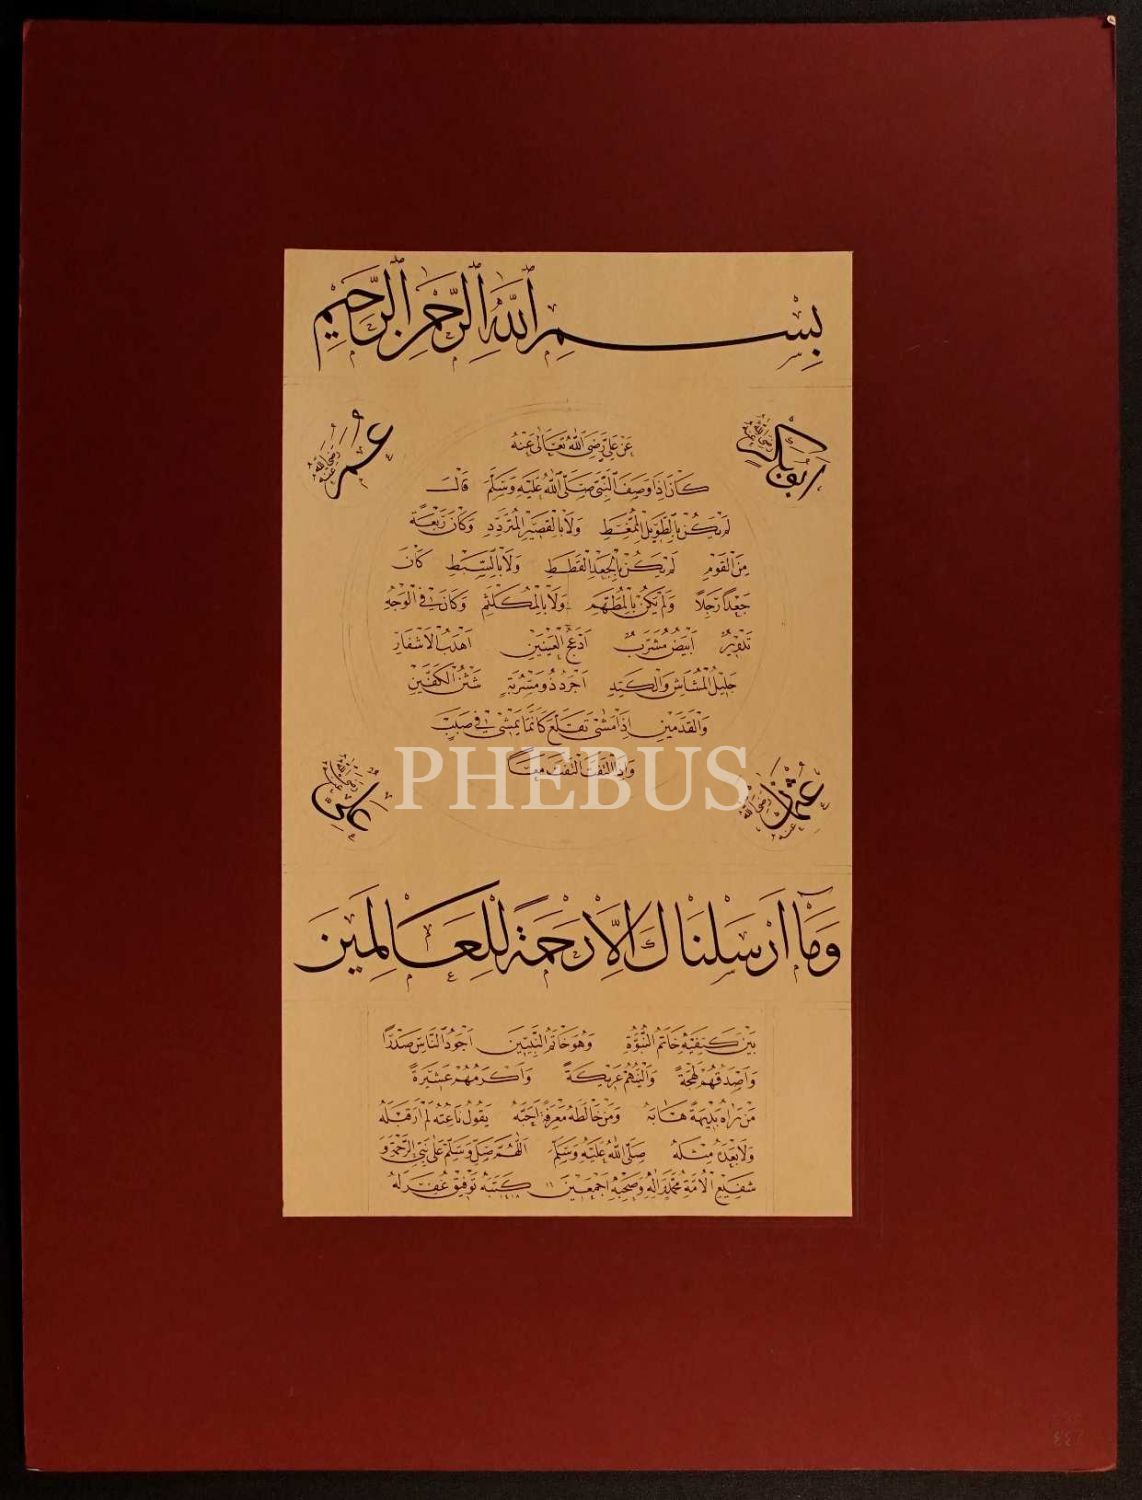 بِسْمِ اللهِ الرَّحْمٰنِ الرَّحِيمِ
أبو بكر رضي الله عنه
عمر رضي الله عنه
عَنْ عَلِيٍّ رَضِيَ اللهُ تَعَالٰى عَنْهُ
كَانَ اِذَا وَصَفَ النَّبِيَّ صَلَّى اللهُ عَلَيْهِ وَسَلَّمَ قَالَ
لَمْ يَكُنْ بِالطَّوِيلِ الْمُمَّغِطِ وَلَا بِالْقَصِيرِ الْمُتَرَدِّدِ وَكَانَ رَبْعَةً
مِنَ الْقَوْمِ لَمْ يَكُنْ بِالْجَعْدِ الْقَطَطِ وَلَا بِالسَّبِطِ كَانَ
جَعْدًا رَجِلًا وَلَمْ يَكُنْ بِالْمُطَهَّمِ وَلَا بِالْمُكَلْثَمِ وَكَانَ فِي الْوَجْهِ
تَدْوِيرٌ اَبْيَضُ مُشْرَبٌ اَدْعَجُ الْعَيْنَيْنِ اَهْدَبُ الْاَشْفَارِ
جَلِيلُ الْمُشَاشِ وَالْكَتَدِ اَجْرَدُ ذُو مَسْرُبَةٍ شَثْنُ الْكَفَّيْنِ
وَالْقَدَمَيْنِ اِذَا مَشٰى تَقَلَّعَ كَاَنَّمَا يَمْشِي فِي صَبَبٍ
وَاِذَا الْتَفَتَ الْتَفَتَ مَعًا
PHEBUS
عثمان رضي الله عنه
علي رضي الله عنه
وَمَا اَرْسَلْنَاكَ اِلَّا رَحْمَةً لِلْعَالَمِينَ
بَيْنَ كَتِفَيْهِ خَاتَمُ النُّبُوَّةِ وَهُوَ خَاتَمُ النَّبِيِّينَ اَجْوَدُ النَّاسِ صَدْرًا
وَاَصْدَقُهُمْ لَهْجَةً وَاَلْيَنُهُمْ عَرِيكَةً وَاَكْرَمُهُمْ عَشِيرَةً
مَنْ رَاٰهُ بَدِيهَةً هَابَهُ وَمَنْ خَالَطَهُ مَعْرِفَةً اَحَبَّهُ يَقُولُ نَاعِتُهُ لَمْ اَرَ قَبْلَهُ
وَلَا بَعْدَهُ مِثْلَهُ صَلَّى اللهُ عَلَيْهِ وَسَلَّمَ اَللّٰهُمَّ صَلِّ وَسَلِّمْ عَلٰى نَبِيِّ الرَّحْمَةِ وَ
شَفِيعِ الْاُمَّةِ مُحَمَّدٍ وَاٰلِهِ وَصَحْبِهِ اَجْمَعِينَ كَتَبَهُ تَوْفِيق غُفِرَ لَهُ